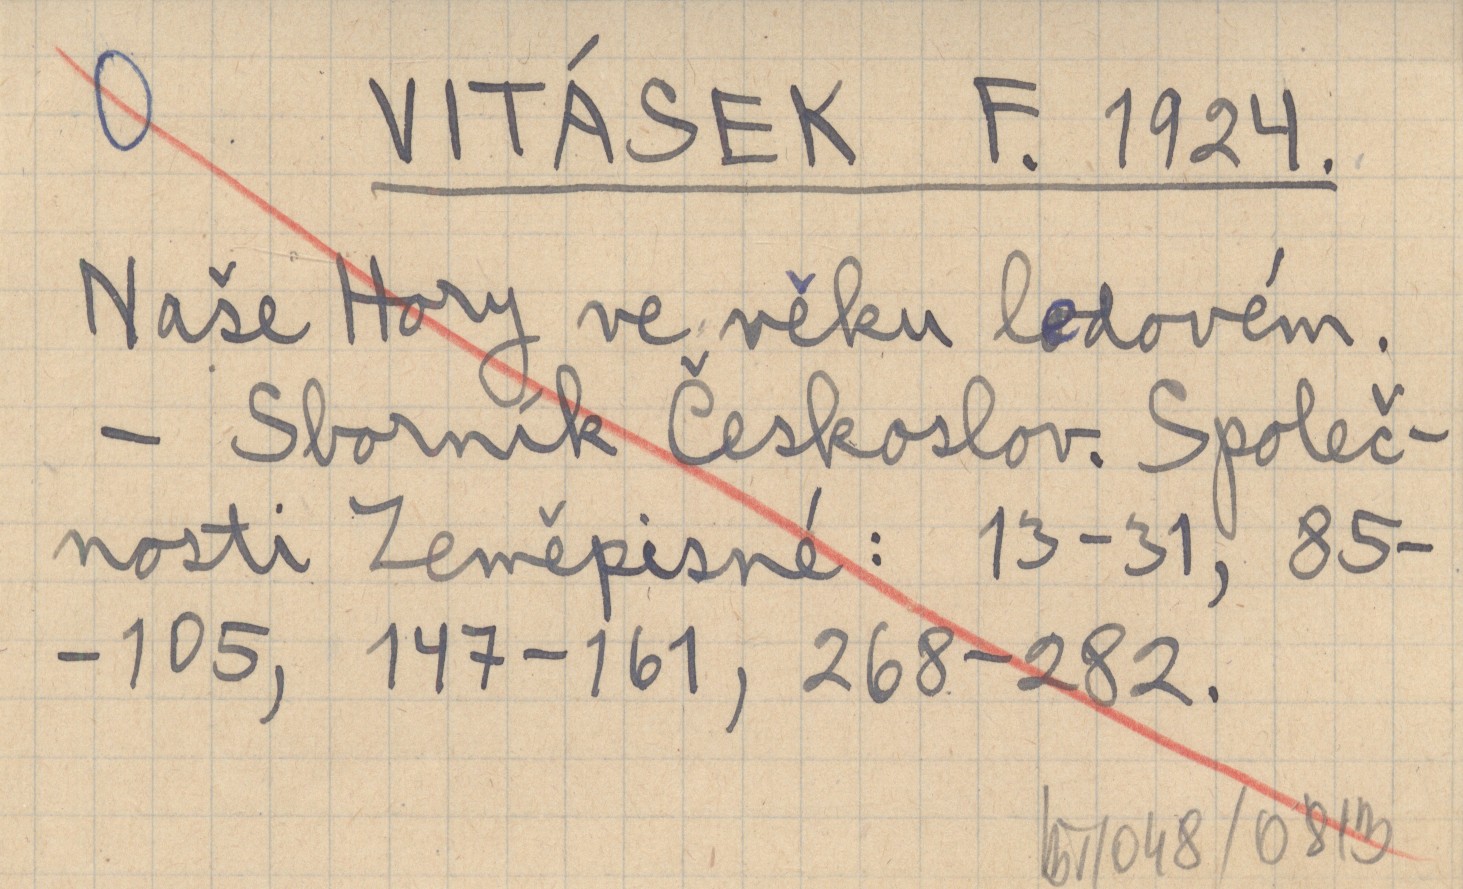 O VITÁSEK F. 1924.
Naše Hory ve věku ledovém.
- Sborník Českoslov. Společ-
nosti Zeměpisné: 13-31, 85-
-105, 147-161, 268-282.
/048/0813